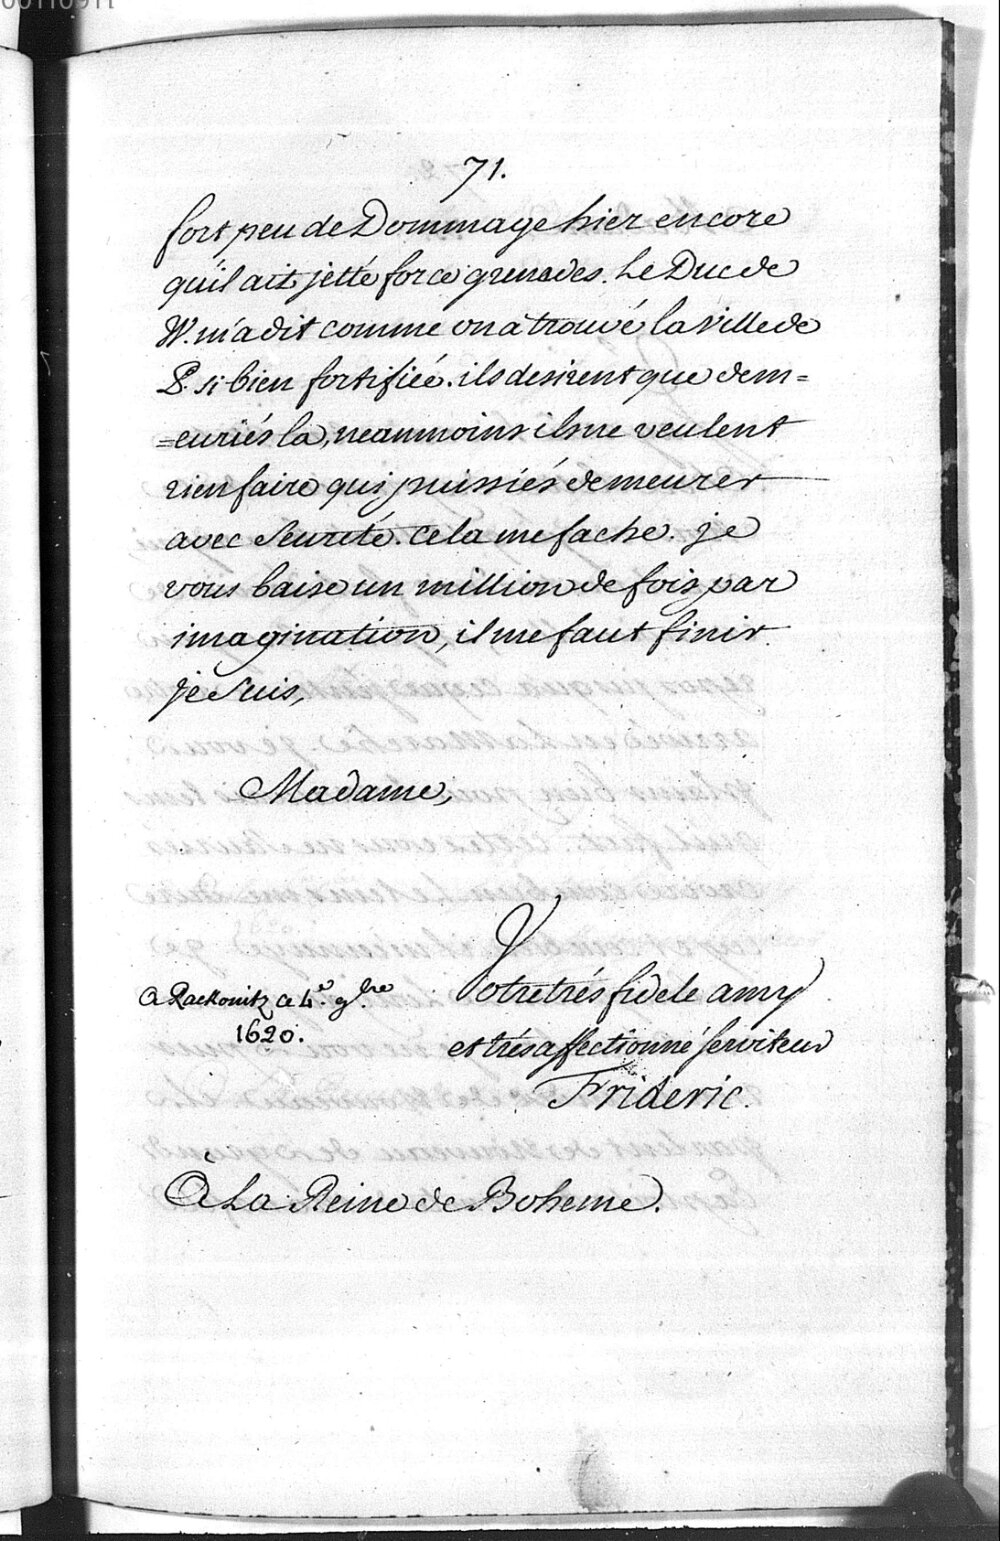 71.
fort peu de Dommage hier encore
qu'il ait jetté force grenades. Le Duc de
W. m'a dit comme on a trouvé la Ville de
P. si bien fortifiée. ils desirent que dem=
=euriés la, neanmoins ils ne veulent
rien faire qui puissiés demeurer
avec Seureté. Cela me fache. je
vous baise un million de fois par
imagination, il me faut finir.
je Suis,
Madame,
Votre trés fidele amy
et trés affectionné serviteur
Frideric.
a Rackonitz ce 4.e 9bre
1620.
À La Reine de Boheme.